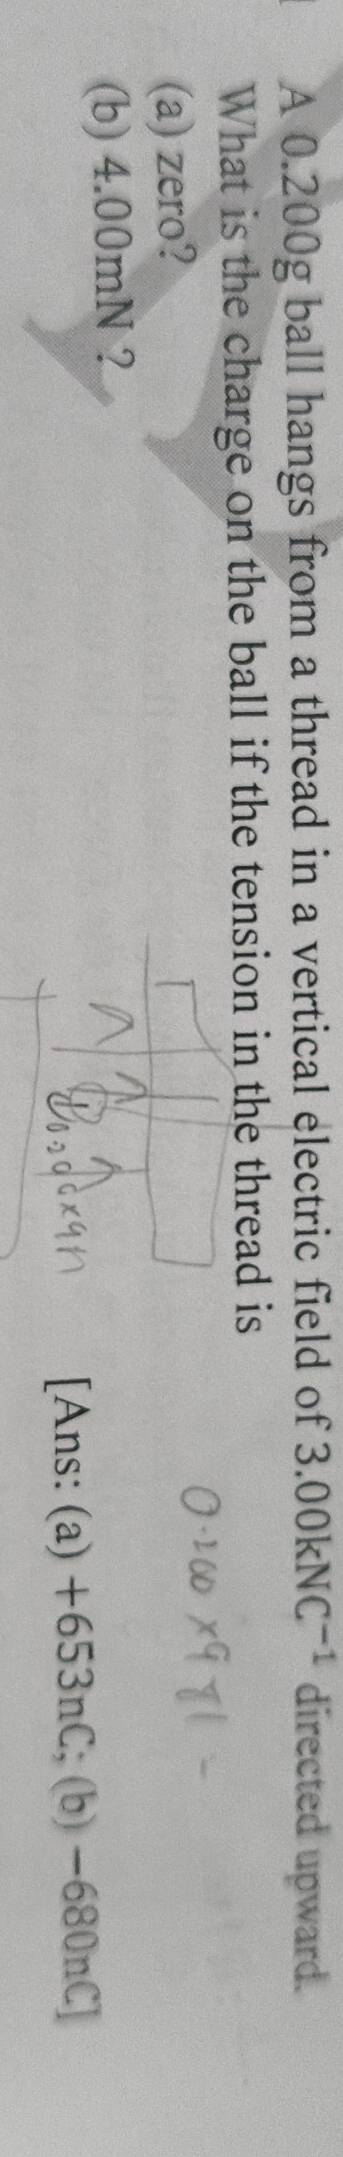 A 0.200g ball hangs from a thread in a vertical electric field of 3.00kNC⁻¹ directed upward.
What is the charge on the ball if the tension in the thread is
(a) zero?
(b) 4.00mN ?
0.200 x 981 -
[Ans: (a) +653nC; (b) −680nC]